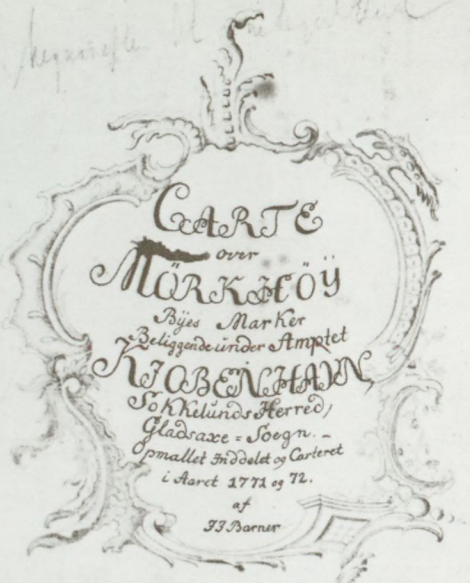 CARTE
over
MÖRKHÖÿ
Bÿes Marker
Beliggende under Amptet
KIOBENHAVN,
Sokkelunds Herred,
Gladsaxe = Soegn. _
Opmallet Inddelet og Carteret
i Aaret 1771 og 72.
af
IJBarner